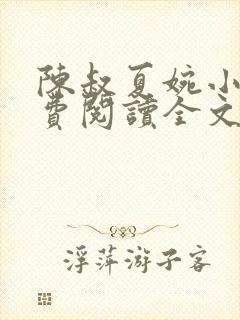 陳叔夏婉小
費閱讀全文
浮萍游子客